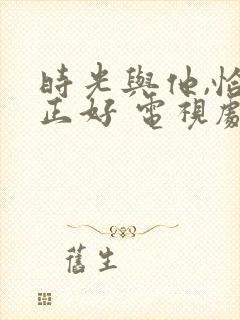 時光與他,恰
正好 電視劇
舊生